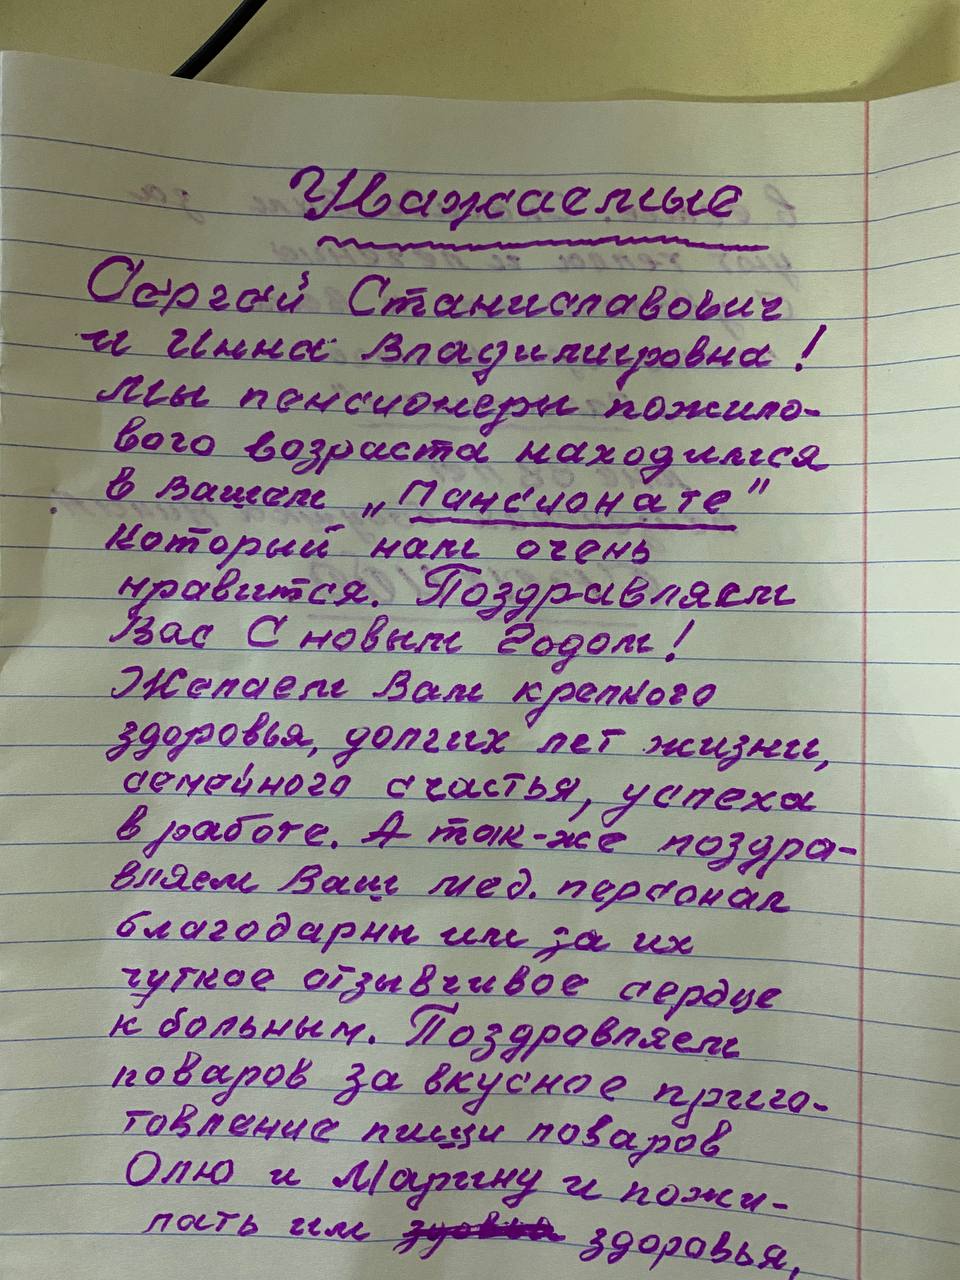 Уважаемые
Сергей Станиславович
и Инна Владимировна!
Мы пенсионеры пожило-
вого возраста находимся
в вашем „Пансионате"
который нам очень
нравится. Поздравляем
Вас С новым Годом!
Желаем Вам крепкого
здоровья, долгих лет жизни,
семейного счастья, успеха
в работе. А так-же поздра-
вляем Ваш мед. персонал
благодарны им за их
чуткое отзывчивое сердце
к больным. Поздравляем
поваров за вкусное приго-
товление пищи поваров
Олю и Марину и пожи-
лать им здоровья,